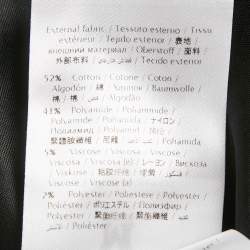 External fabric / Tessuto esterno / Tissu
extérieur / Tejido exterior / 表地 /
внешний материал / Oberstoff / 面料 /
外部布料 / / Tecido exterior
52% Cotton / Cotone / Coton /
Algodón / 綿 / / Baumwolle /
棉 / 棉 / / Algodão
41% Polyamide / Poliammide /
Polyamide / / ナイロン /
Полиамид / Polyamid / /
/ 尼龍 / /
5% Viscose / Viscosa / Viscose /
Viscosa / Viscosa (e) / レーヨン / Вискоза
/ Viskose / / /
/ Viscose / Viscosa (e)
2% Polyester / Poliestere /
Polyester / Poliéster / Polyester /
Poliéster / ポリエステル / Полиэфир /
Polyester / / /
/ Poliéster